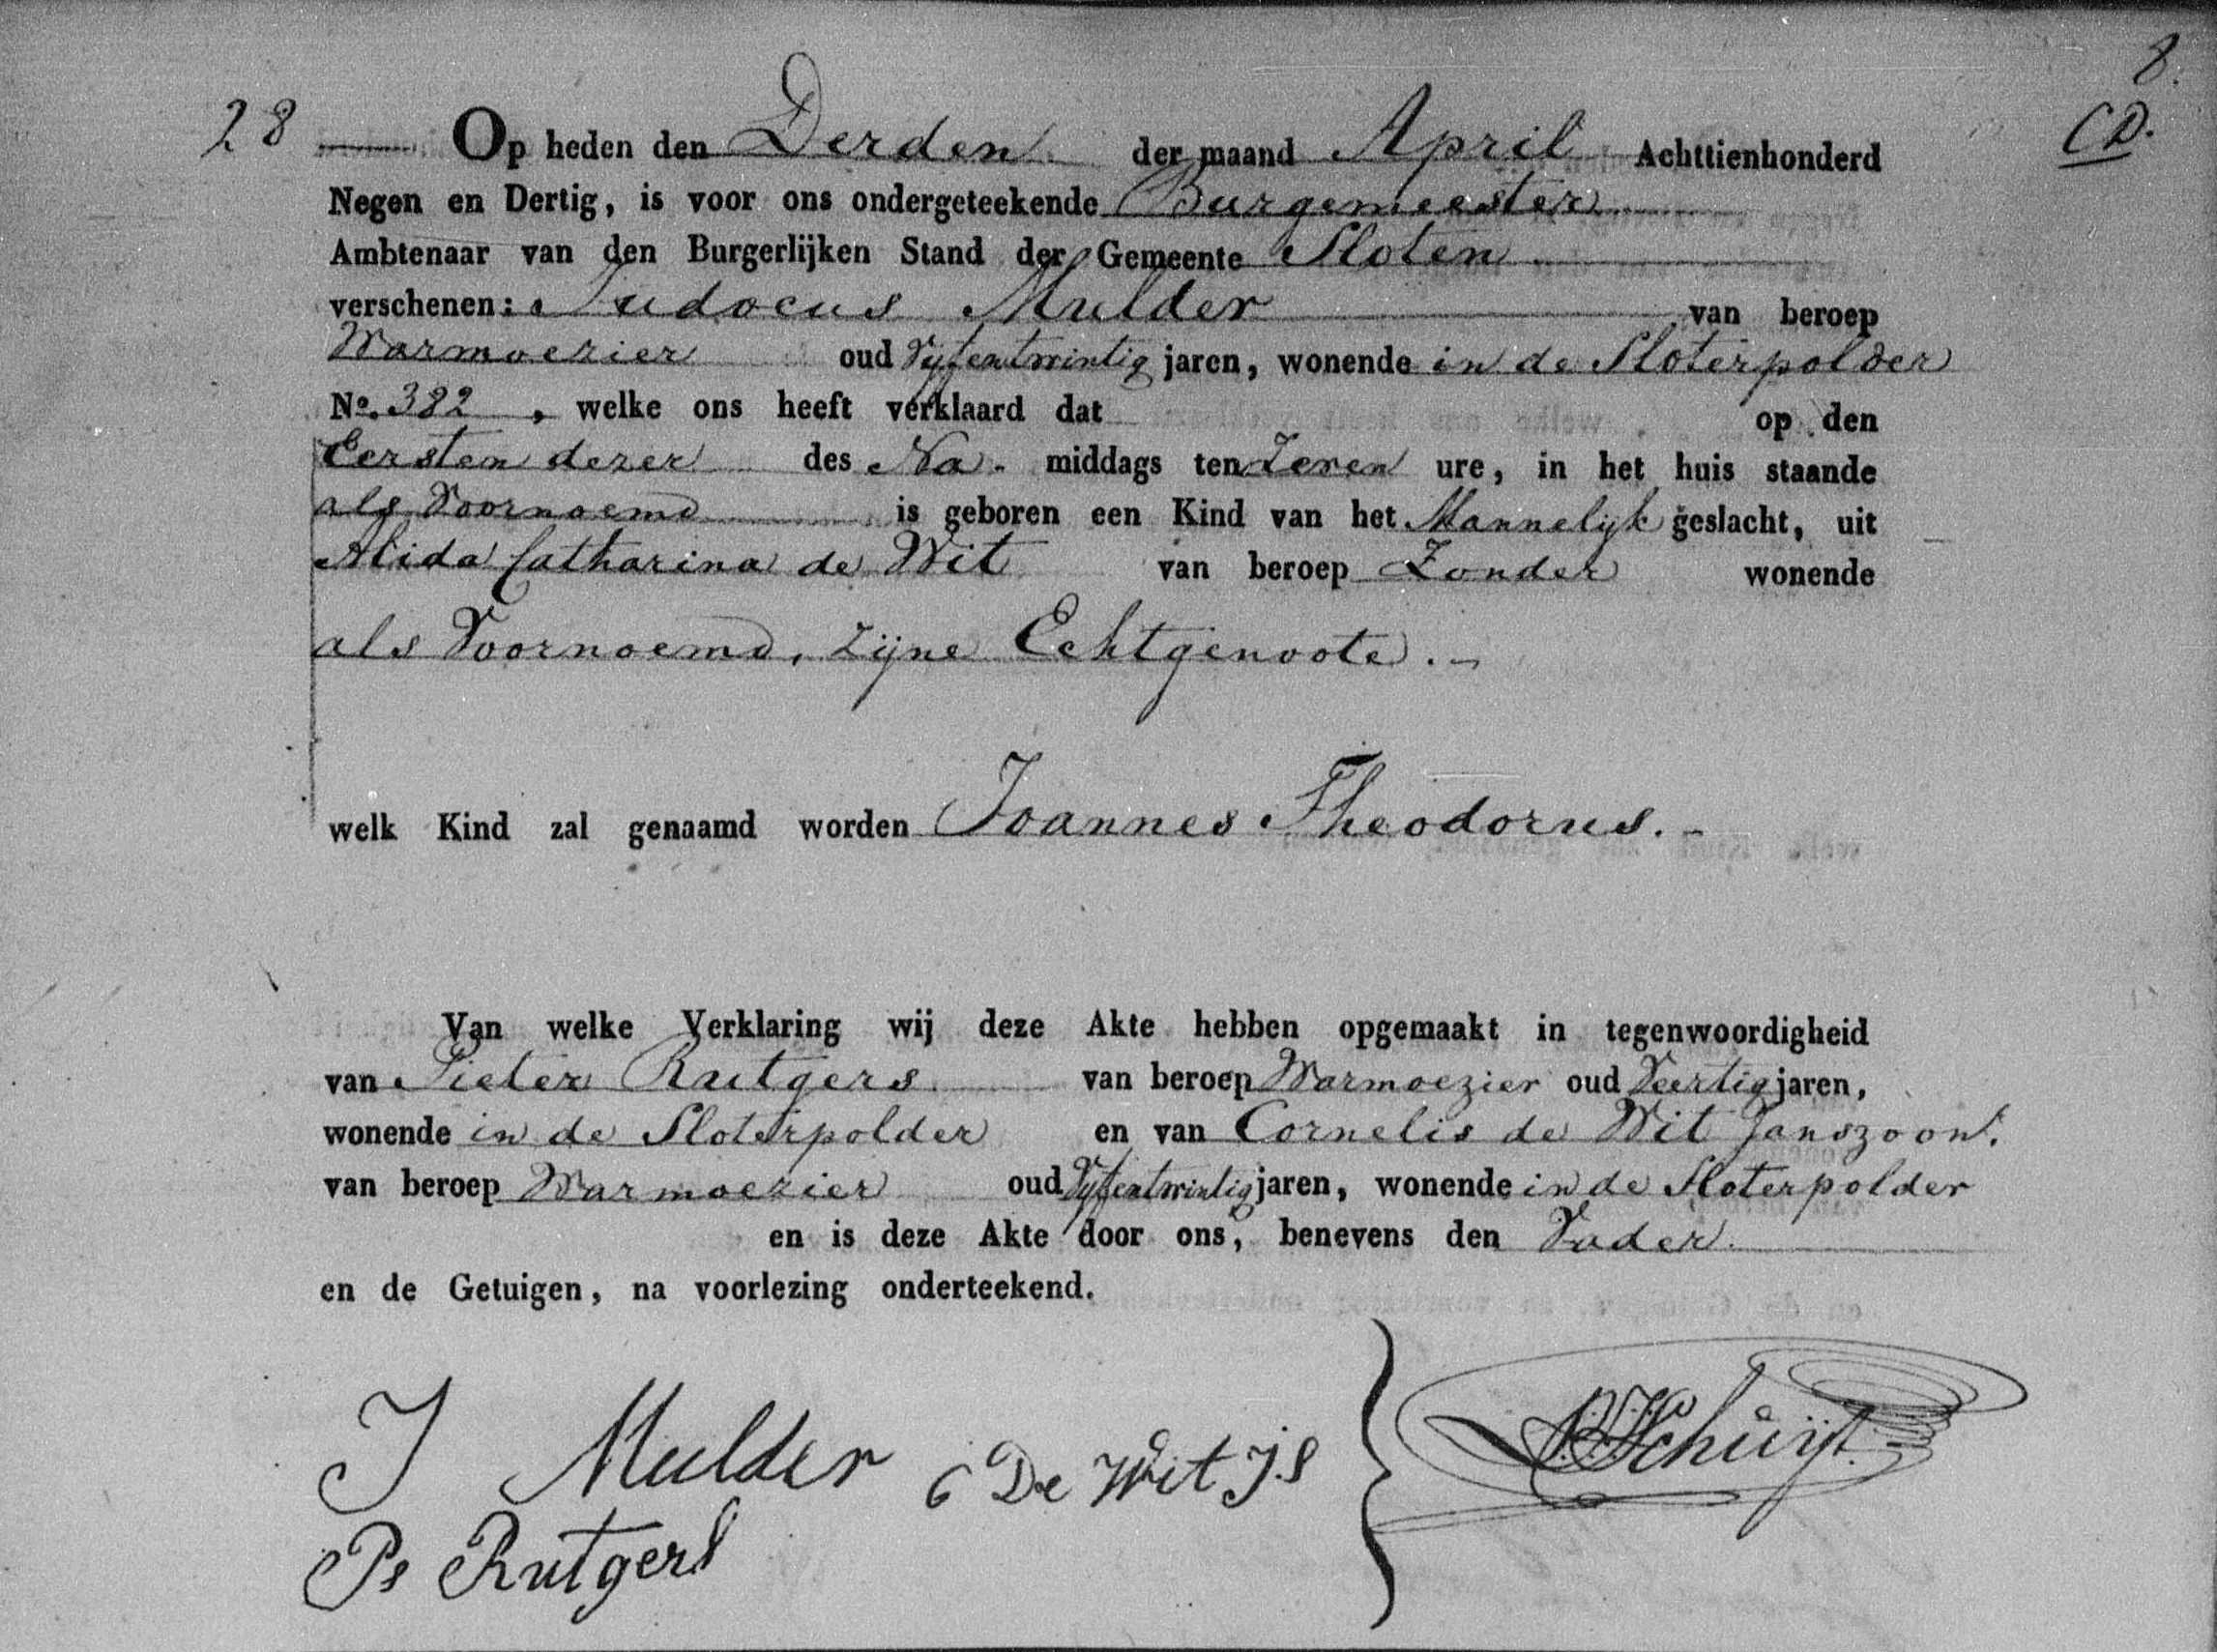 8.
CD.
28 Op heden den Derden der maand April Achttienhonderd
Negen en Dertig, is voor ons ondergeteekende Burgemeester
Ambtenaar van den Burgerlijken Stand der Gemeente Sloten
verschenen: Judocus Mulder van beroep
Warmoezier oud Vijfentwintig jaren, wonende in de Sloterpolder
No. 382, welke ons heeft verklaard dat op den
Eersten dezer des Na- middags ten Zeven ure, in het huis staande
als Voornoemd is geboren een Kind van het Mannelijk geslacht, uit
Alida Catharina de Wit van beroep Zonder wonende
als Voornoemd, zijne Echtgenoote.-
welk Kind zal genaamd worden Joannes Theodorus.-
Van welke Verklaring wij deze Akte hebben opgemaakt in tegenwoordigheid
van Pieter Rutgers van beroep Warmoezier oud Veertig jaren,
wonende in de Sloterpolder en van Cornelis de Wit Janszoon.
van beroep Warmoezier oud Vijfentwintig jaren, wonende in de Sloterpolder
en is deze Akte door ons, benevens den Vader
en de Getuigen, na voorlezing onderteekend.
J Mulder C De Wit JS
Ps Rutgers